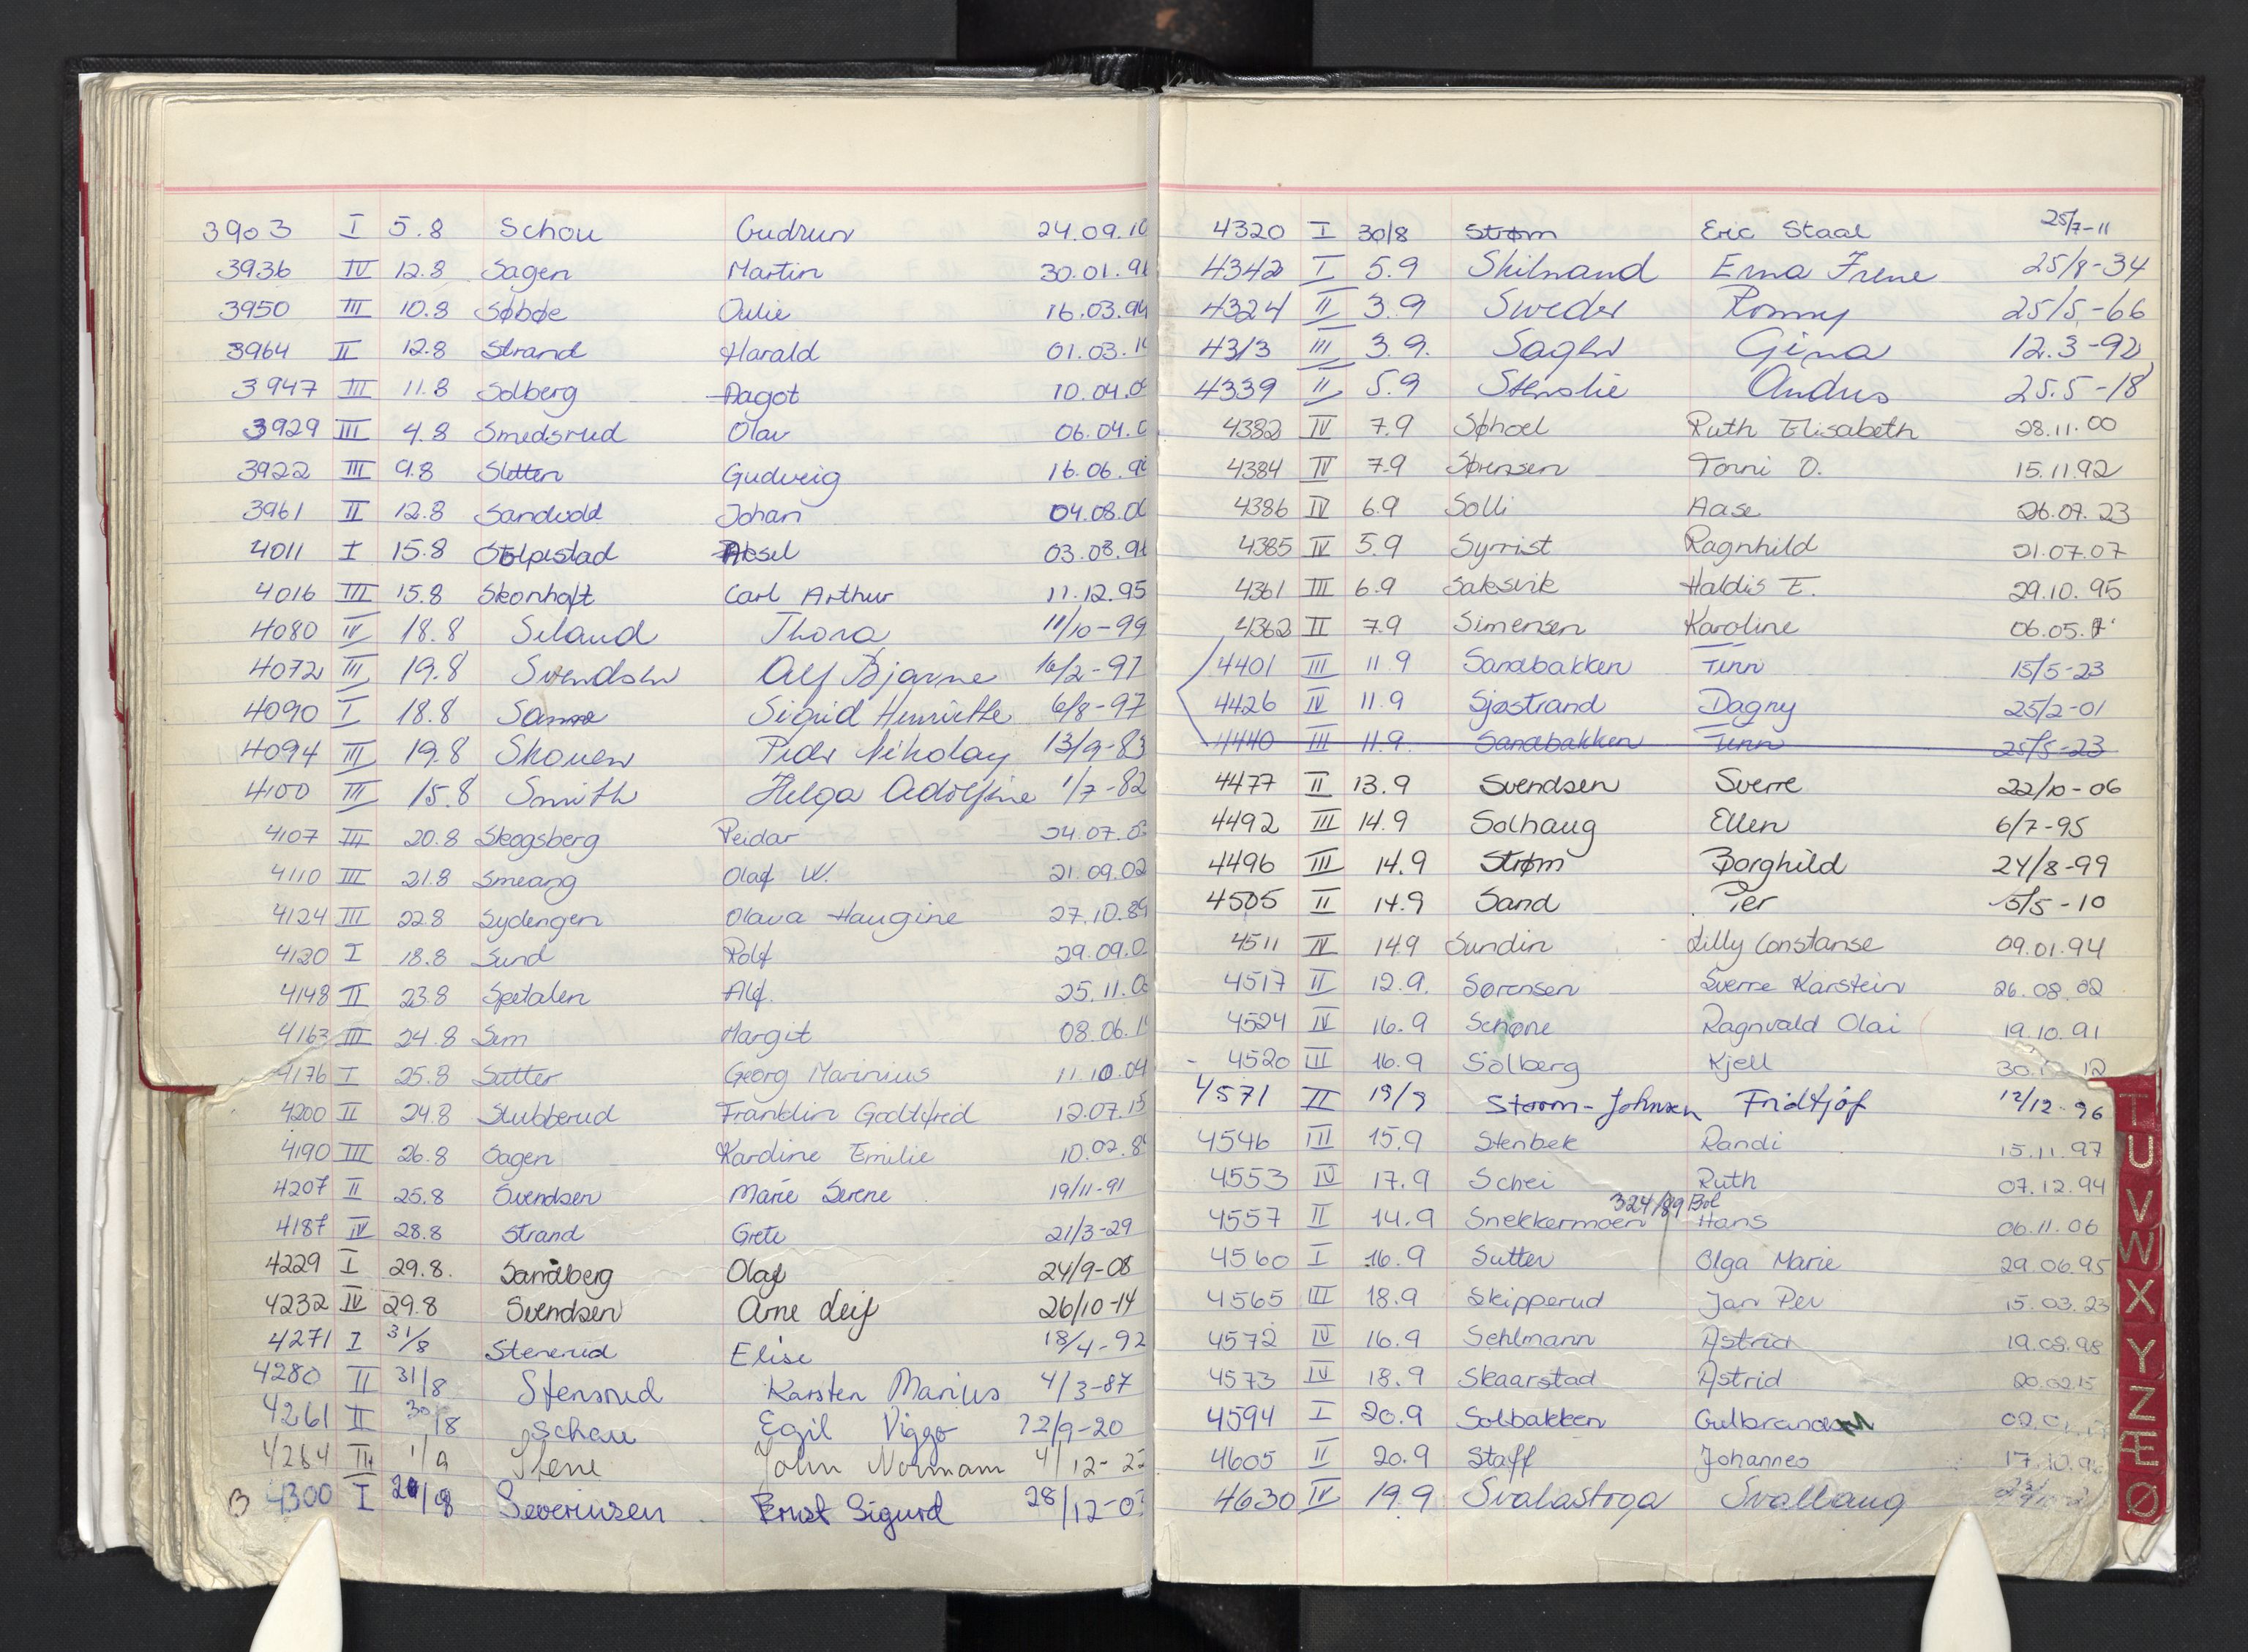 3903 I 5.8 Schou Gudrun 24.09.10
3936 IV 12.8 Sagen Martin 30.01.91
3950 III 10.8 Søbøe Julie 16.03.94
3964 II 12.8 Strand Harald 01.03.1
3947 III 11.8 Solberg Dagot 10.04.0
3929 III 4.8 Smedsrud Olav 06.04.0
3922 III 9.8 Sletten Gudveig 16.06.9
3961 II 12.8 Sandvold Johan 04.08.0
4011 I 15.8 Stolpestad Aksel 03.03.9
4016 III 15.8 Skonhoft Carl Arthur 11.12.95
4080 IV 18.8 Seland Thora 11/10-99
4072 III 19.8 Svendsen Alf Bjarne 16/2-97
4090 I 18.8 Sanne Sigrid Henriette 6/8-97
4094 III 19.8 Skouen Peder Nikolay 13/9-83
4100 III 15.8 Smith Helga Adolfine 1/7-82
4107 III 20.8 Skogsberg Reidar 24.07.0
4110 III 21.8 Smeang Olaf W. 21.09.02
4124 III 22.8 Sydengen Olava Haugine 27.10.89
4120 I 18.8 Sund Rolf 29.09.0
4148 II 23.8 Spetalen Alf. 25.11.0
4163 III 24.8 Sem Margit 08.06.1
4176 I 25.8 Sutter Georg Marinius 11.10.04
4200 II 24.8 Stubberud Franklin Godtfred 12.07.15
4190 III 26.8 Sagen Karoline Emilie 10.02.8
4207 II 25.8 Svendsen Marie Serene 19/11-91
4187 IV 28.8 Strand Grete 21/3-29
4229 I 29.8. Sandberg Olaf 24/9-08
4232 IV 29.8 Svendsen Arne Leif 26/10-14
4271 I 31/8 Stenerud Elise 18/4-92
4280 II 31/8 Stensrud Karsten Marius 4/3-87
4261 II 30/8 Schau Egil Viggo 22/9-20
4264 III 1/9 Stene John Normann 4/12-22
4300 I 29/8 Severinsen Ernst Sigurd 28/12-0
4320 I 30/8 Strøm Eric Staal 25/7-11
4342 I 5.9 Skilnand Erna Irene 25/8-34
4324 II 3.9 Sweder Ronny 25/5-66
4313 III 3.9. Sagen Gina 12.3-92
4339 II 5.9 Stenslie Anders 25.5-18
4382 IV 7.9 Søhoel Ruth Elisabeth 28.11.00
4384 IV 7.9 Sørensen Tonni O. 15.11.92
4386 IV 6.9 Solli Aase 26.07.23
4385 IV 5.9 Syrrist Ragnhild 21.07.07
4361 III 6.9 Saksvik Haldis E. 29.10.95
4362 II 7.9 Simensen Karoline 06.05.
4401 III 11.9 Sandbakken Finn 15/5-23
4426 IV 11.9 Sjøstrand Dagny 25/2-01
4440 III 11.9 Sandbakken Finn 25/5-23
4477 II 13.9 Svendsen Sverre 22/10-06
4492 III 14.9 Solhaug Ellen 6/7-95
4496 III 14.9 Strøm Borghild 24/8-99
4505 II 14.9 Sand Per 5/5-10
4511 IV 14.9 Sundin Lilly Constanse 09.01.94
4517 II 12.9. Sørensen Sverre Karstein 26.08.02
4524 IV 16.9 Schøne Ragnvald Olai 19.10.91
- 4520 III 16.9 Solberg Kjell 30.1 12
4571 II 19/9 Storm-Johnsen Fridtjof 12/12-96
4546 III 15.9 Stenbek Randi 15.11.97
4553 IV 17.9 Schei Ruth 07.12.94
324/89 Bol
4557 II 14.9 Snekkermoen Hans 06.11.06
4560 I 16.9 Sutter Olga Marie 29.06.95
4565 III 18.9 Skipperud Jan Per 15.03.23
4572 IV 16.9 Sehlmann Astrid 19.08.98
4573 IV 18.9 Skaarstad Astrid 20.02.15
4594 I 20.9 Solbakken Gulbrand 02.0
4605 II 20.9 Staff Johannes 17.10.9
4630 IV 19.9 Svalastoga Svallaug
T
U
V
W
X
Y
Z
Æ
Ø